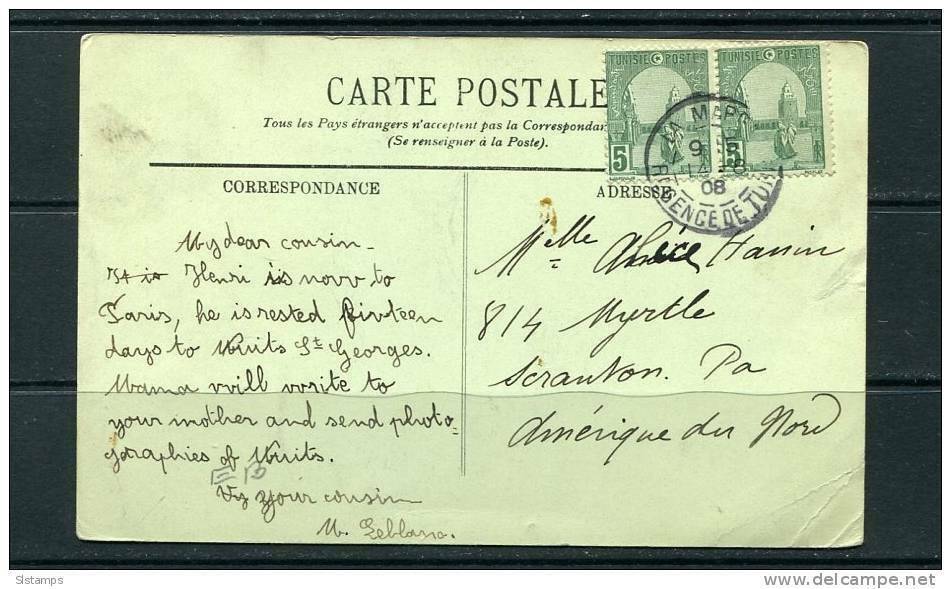 CARTE POSTALE
Tous les Pays étrangers n'acceptent pas la Correspondan
(Se renseigner à la Poste).
TUNISIE POSTES
5
TUNISIE POSTES
5
LA MARS
9
14
08
REGENCE DE TUNI
CORRESPONDANCE
My dear cousin_
Henri is now to
Paris, he is rested fivteen
days to Nuits St Georges.
Mama will write to
your mother and send photo-
graphies of Nuits.
your cousin
M. Leblanc.
ADRESSE
Melle Alice Hanin
814 Myrtle
Scranton. Pa
Amérique du Nord
Slstamps
www.delcampe.net